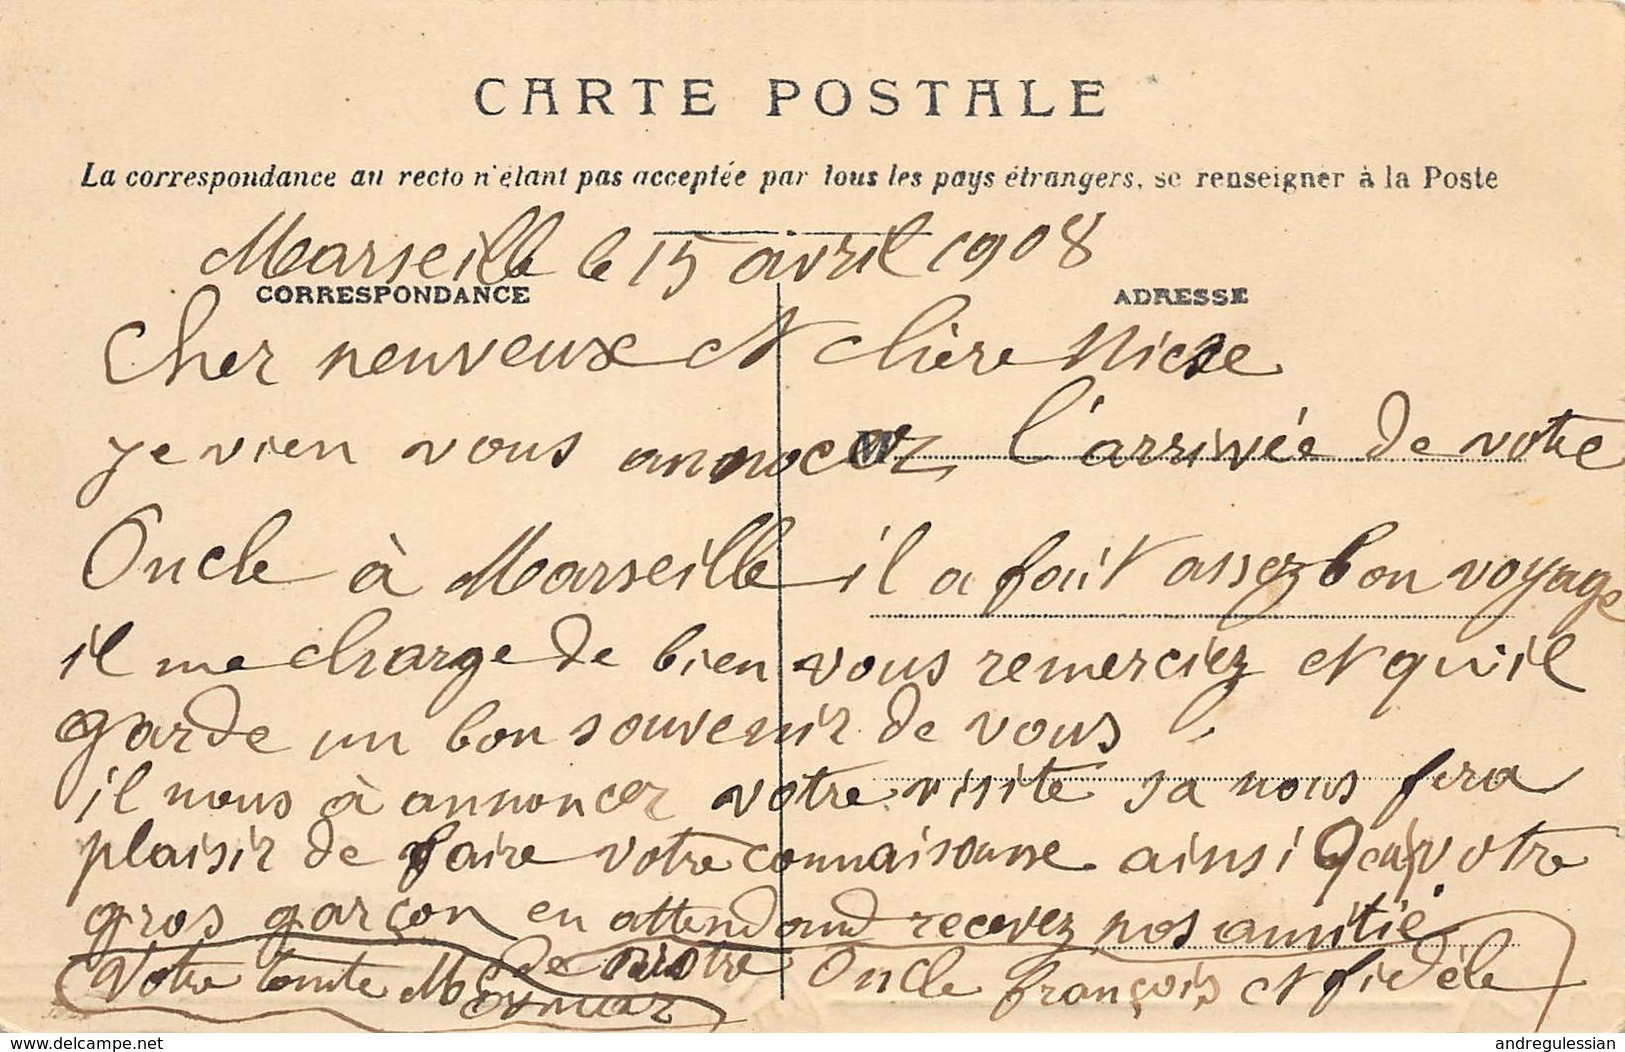 CARTE POSTALE
La correspondance au recto n'étant pas acceptée par tous les pays étrangers, se renseigner à la Poste
Marseille le 15 avril 1908
CORRESPONDANCE
ADRESSE
Cher neuveux et chère Niese
je vien vous annocez l'arrivée de votre
M
Oncle à Marseille il a fait assez bon voyage
il me charge de bien vous remerciez et qu'il
garde un bon souvenir de vous
il nous à annoncer votre visite sa nous fera
plaisir de faire votre connaisanse ainsi que votre
gros garçon en attendand recevez nos amitié
de notre Oncle françois et fidèle
Votre tante
www.delcampe.net
andregulessian